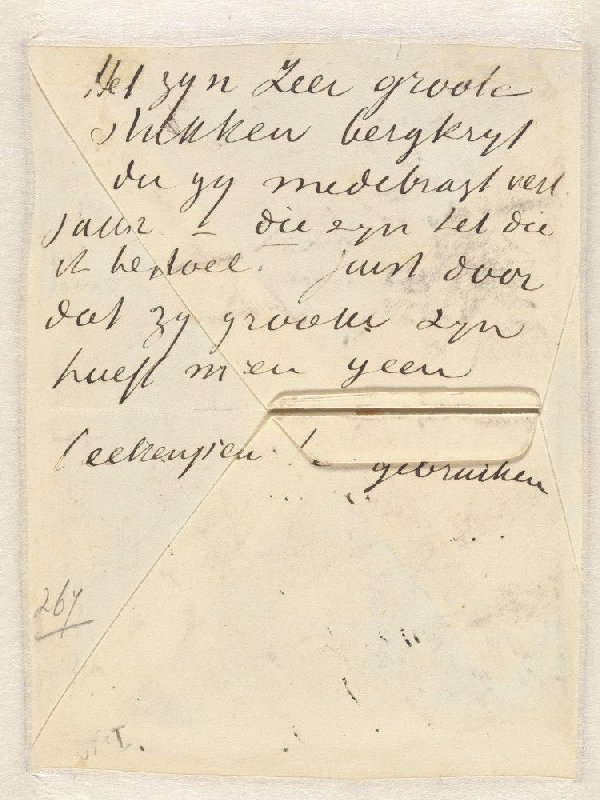 Het zyn zeer groote
stukken bergkryt
die gy medebragt verl.
jaar – die zyn het die
ik bedoel. Juist door
dat zy groote zyn
hoeft men geen
teekenpen te gebruiken
267